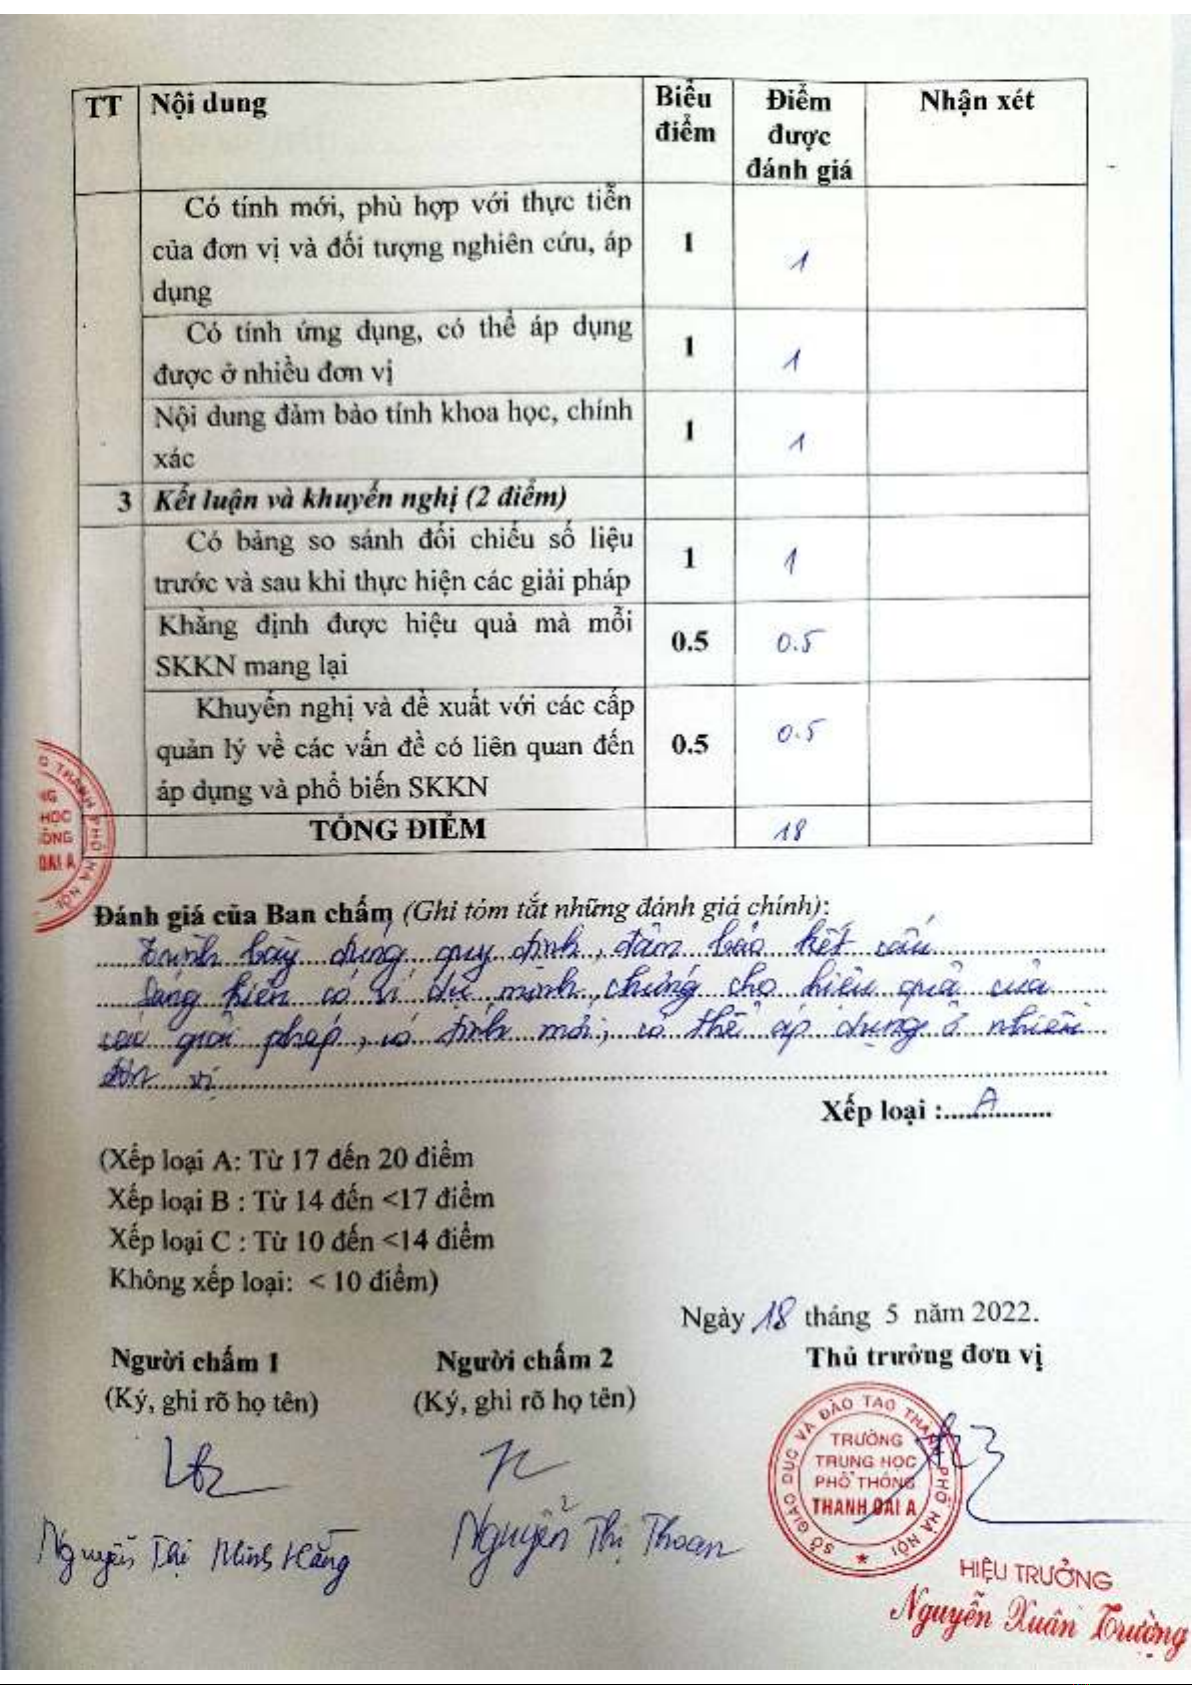 TT Nội dung Biểu điểm Điểm được đánh giá Nhận xét
Có tính mới, phù hợp với thực tiễn
của đơn vị và đối tượng nghiên cứu, áp
dụng
1 1
Có tính ứng dụng, có thể áp dụng
được ở nhiều đơn vị
1 1
Nội dung đảm bảo tính khoa học, chính
xác
1 1
3 Kết luận và khuyến nghị (2 điểm)
Có bảng so sánh đối chiếu số liệu
trước và sau khi thực hiện các giải pháp
1 1
Khẳng định được hiệu quả mà mỗi
SKKN mang lại
0.5 0.5
Khuyến nghị và đề xuất với các cấp
quản lý về các vấn đề có liên quan đến
áp dụng và phổ biến SKKN
0.5 0.5
TỔNG ĐIỂM 18
G THÀNH PHỐ HÀ NỘI
NG
HỌC
ÔNG
OAI A
Đánh giá của Ban chấm (Ghi tóm tắt những đánh giá chính):
Trình bày đúng quy định, đảm bảo kết cấu
Sáng kiến có ví dụ minh chứng cho hiệu quả của
các giải pháp, có tính mới, có thể áp dụng ở nhiều
đơn vị
Xếp loại : A
(Xếp loại A: Từ 17 đến 20 điểm
Xếp loại B : Từ 14 đến <17 điểm
Xếp loại C : Từ 10 đến <14 điểm
Không xếp loại: < 10 điểm)
Ngày 18 tháng 5 năm 2022.
Người chấm 1 Người chấm 2 Thủ trưởng đơn vị
(Ký, ghi rõ họ tên) (Ký, ghi rõ họ tên)
SỞ GIÁO DỤC VÀ ĐÀO TẠO THÀNH PHỐ HÀ NỘI
TRƯỜNG
TRUNG HỌC
PHỔ THÔNG
THANH OAI A
Nguyễn Thị Minh Hằng Nguyễn Thị Thoan
HIỆU TRƯỞNG
Nguyễn Xuân Trường